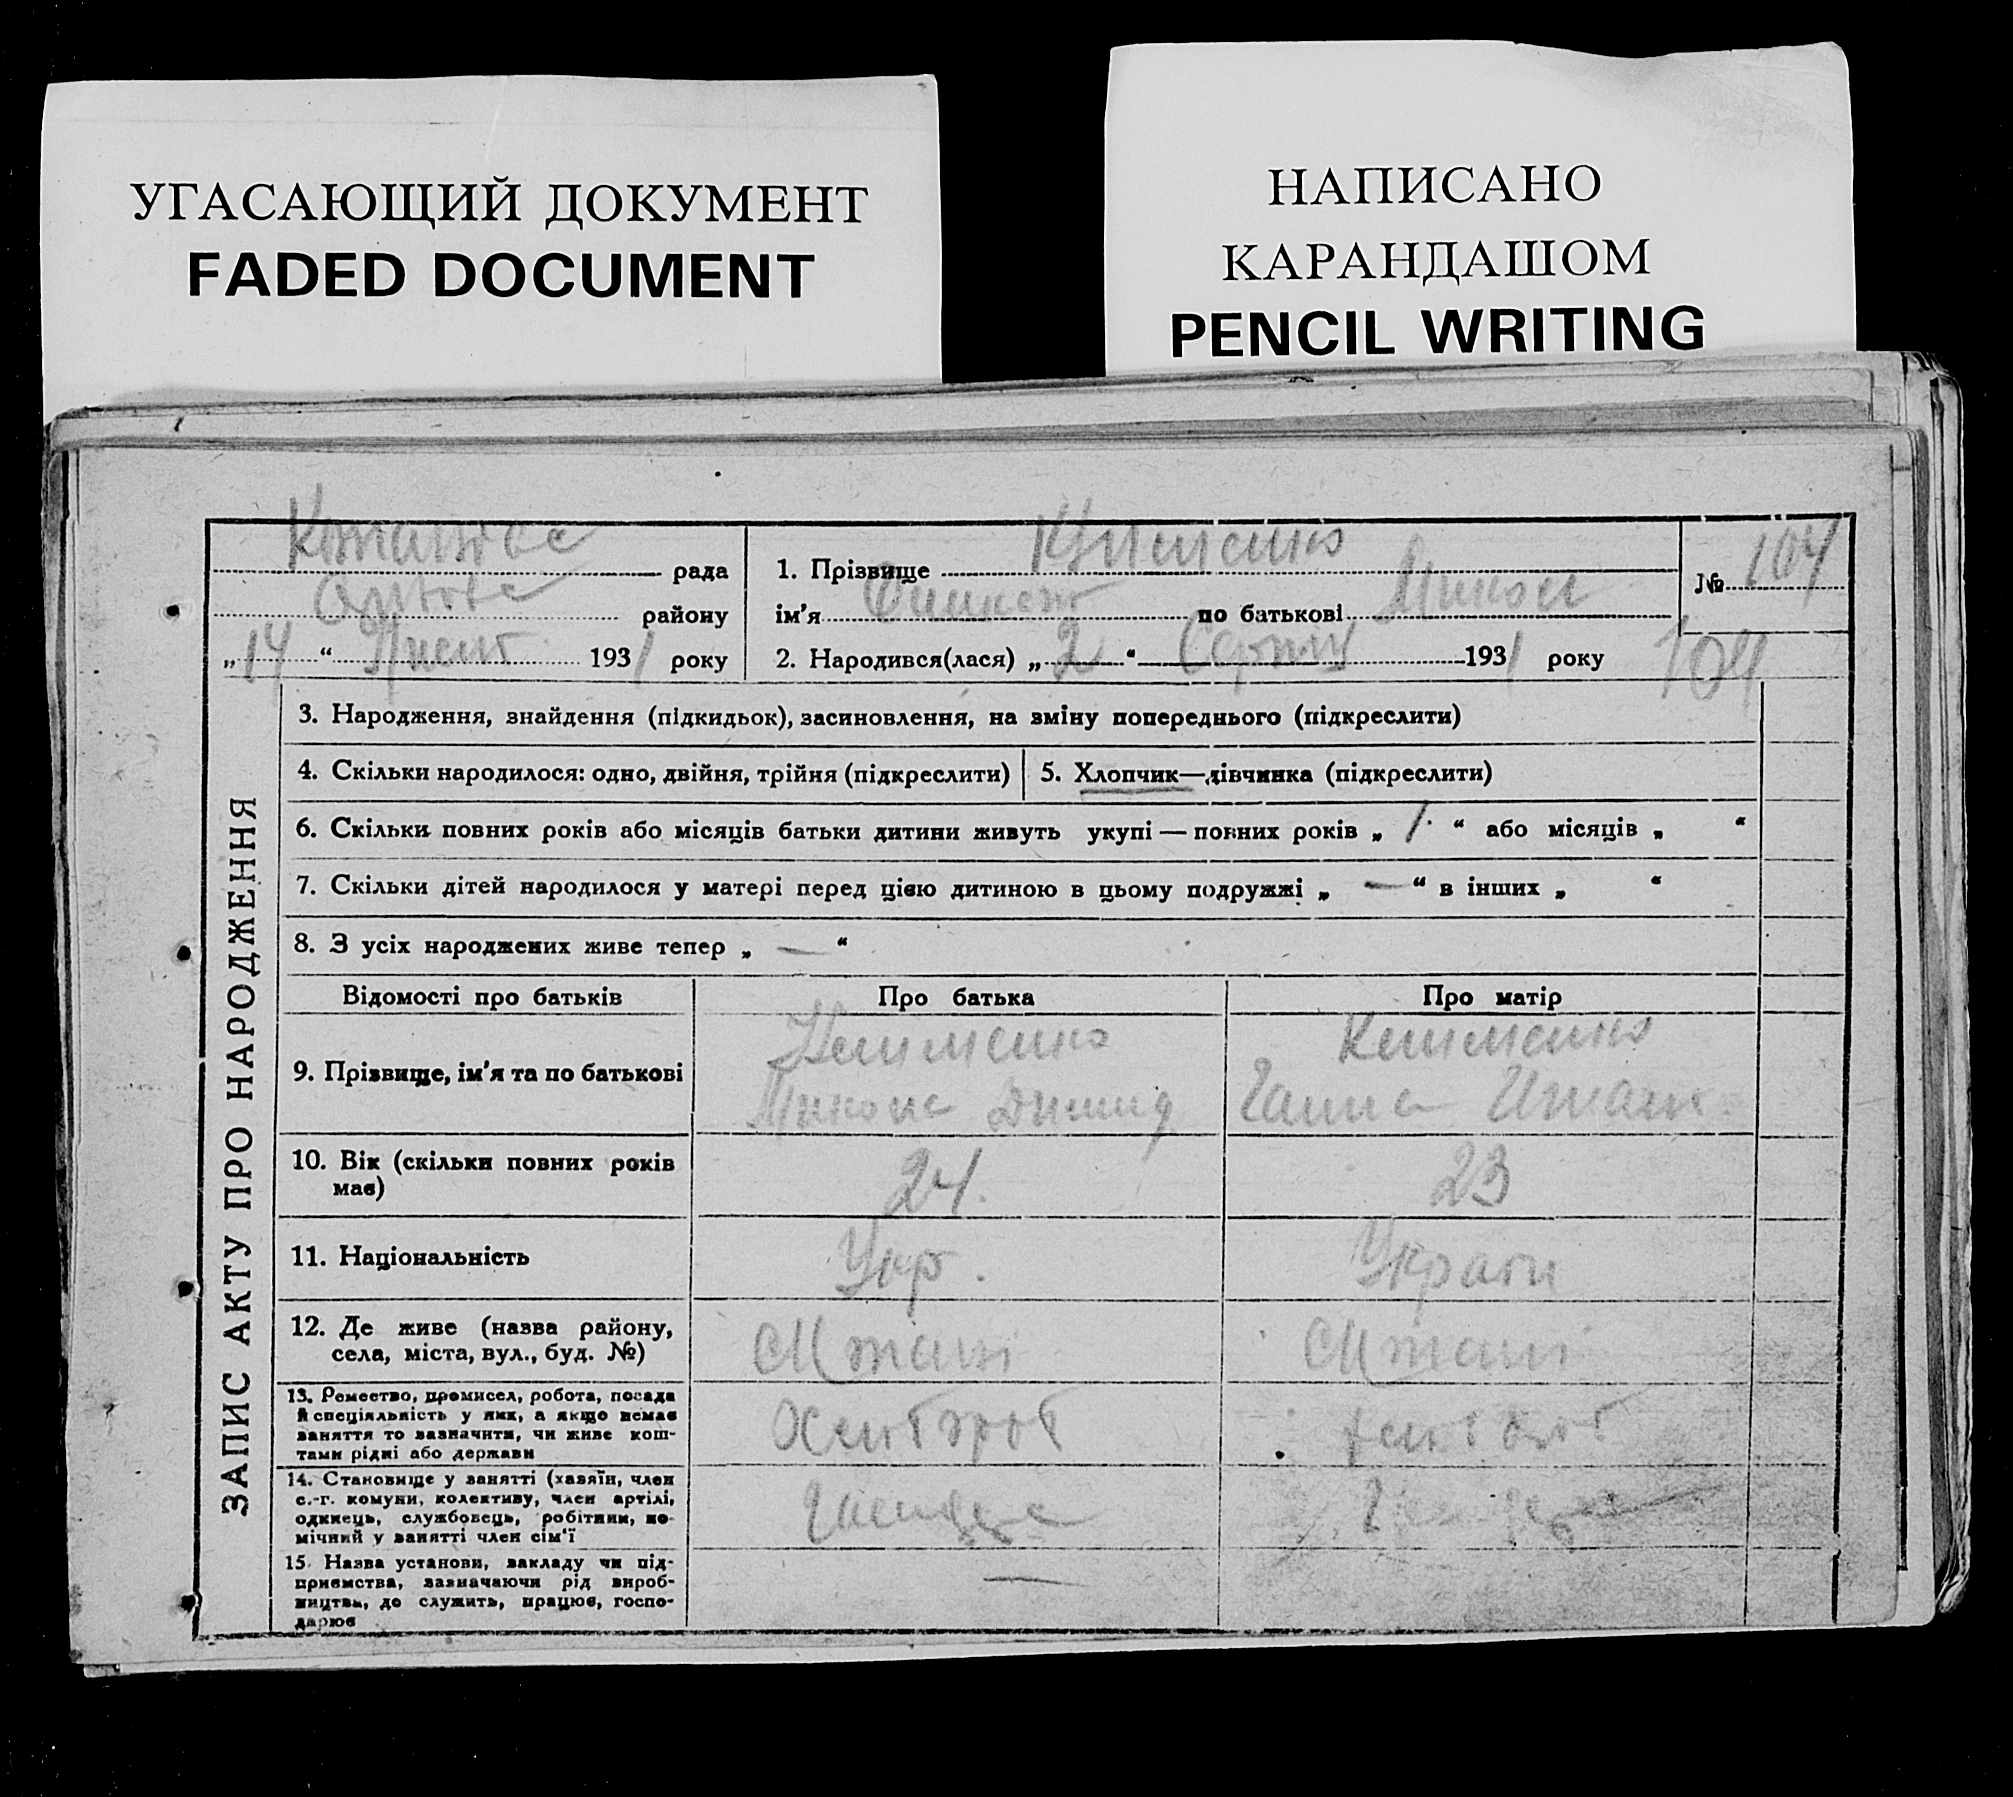 УГАСАЮЩИЙ ДОКУМЕНТ
FADED DOCUMENT
НАПИСАНО
КАРАНДАШОМ
PENCIL WRITING
рада
району
„14“ 1931 року
1. Прізвище Клименко
ім'я по батькові Микол
2. Народився(лася) „2“ Серпня 1931 року
№ 104
104
ЗАПИС АКТУ ПРО НАРОДЖЕННЯ
3. Народження, знайдення (підкидьок), засиновлення, на зміну попереднього (підкреслити)
4. Скільки народилося: одно, двійня, трійня (підкреслити)
5. Хлопчик—дівчинка (підкреслити)
6. Скільки повних років або місяців батьки дитини живуть укупі — повних років „ 1 “ або місяців „ “
7. Скільки дітей народилося у матері перед цією дитиною в цьому подружжі „ — “ в інших „ “
8. З усіх народжених живе тепер „ — “
Відомості про батьків
Про батька
Про матір
9. Прізвище, ім'я та по батькові
Клименко
Микола Демид
Клименко
Ганна Иван
10. Вік (скільки повних років
має)
24.
23
11. Національність
Укр.
Украін
12. Де живе (назва району,
села, міста, вул., буд. №)
13. Ремество, промисел, робота, посада
й спеціяльність у них, а якщо немає
заняття то зазначити, чи живе кош-
тами рідні або держави
Хлібороб
Хлібороб
14. Становище у занятті (хазяїн, член
с.-г. комуни, колективу, член артілі,
одинець, службовець, робітник, по-
мічний у занятті член сім'ї
15. Назва установи, закладу чи під-
приємства, зазначаючи рід вироб-
ництва, де служить, працює, госпо-
дарює
—